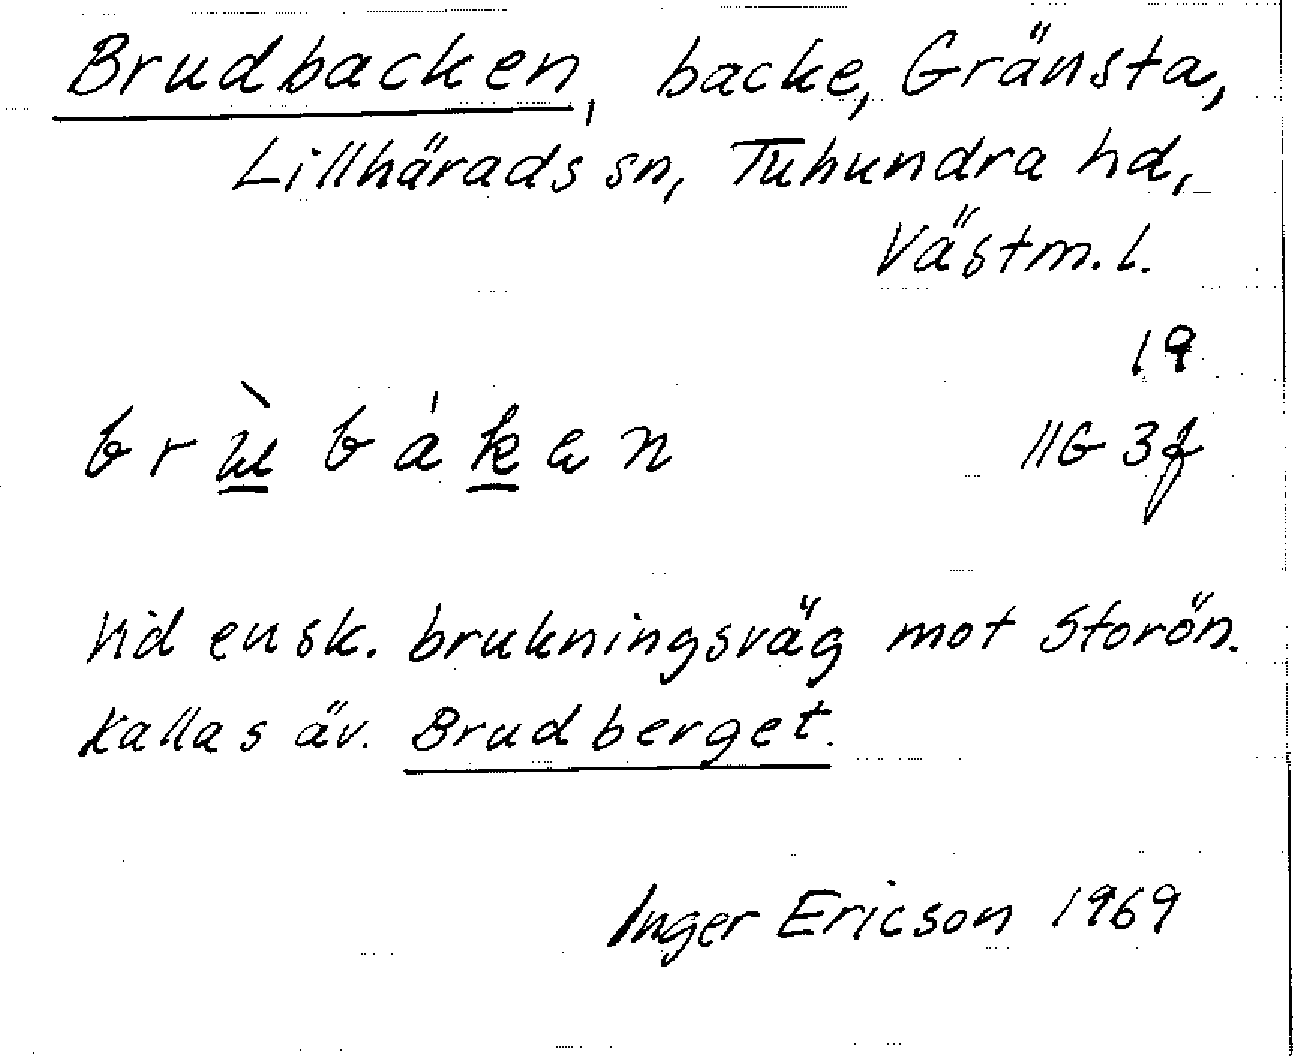 Brudbacken, backe, Gränsta,
Lillhärads sn, Tuhundra hd,
Västm. l.
19
brù̱báḵən 11G 3f
Vid ensk. brukningsväg mot Storön.
Kallas äv. Brudberget.
Inger Ericson 1969